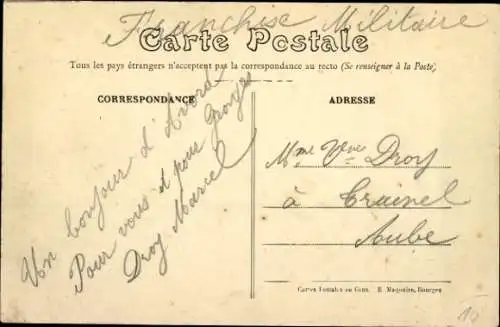 Franchise Militaire
Carte Postale
Tous les pays étrangers n'acceptent pas la correspondance au recto (Se renseigner à la Poste)
CORRESPONDANCE
ADRESSE
Un bonjour d'Avord
Pour vous et pour Georges
Droy Marcel
Mme Veuve Droy
à Trainel
Aube
Cartes Postales en Gros. E. Maquaire, Bourges
10